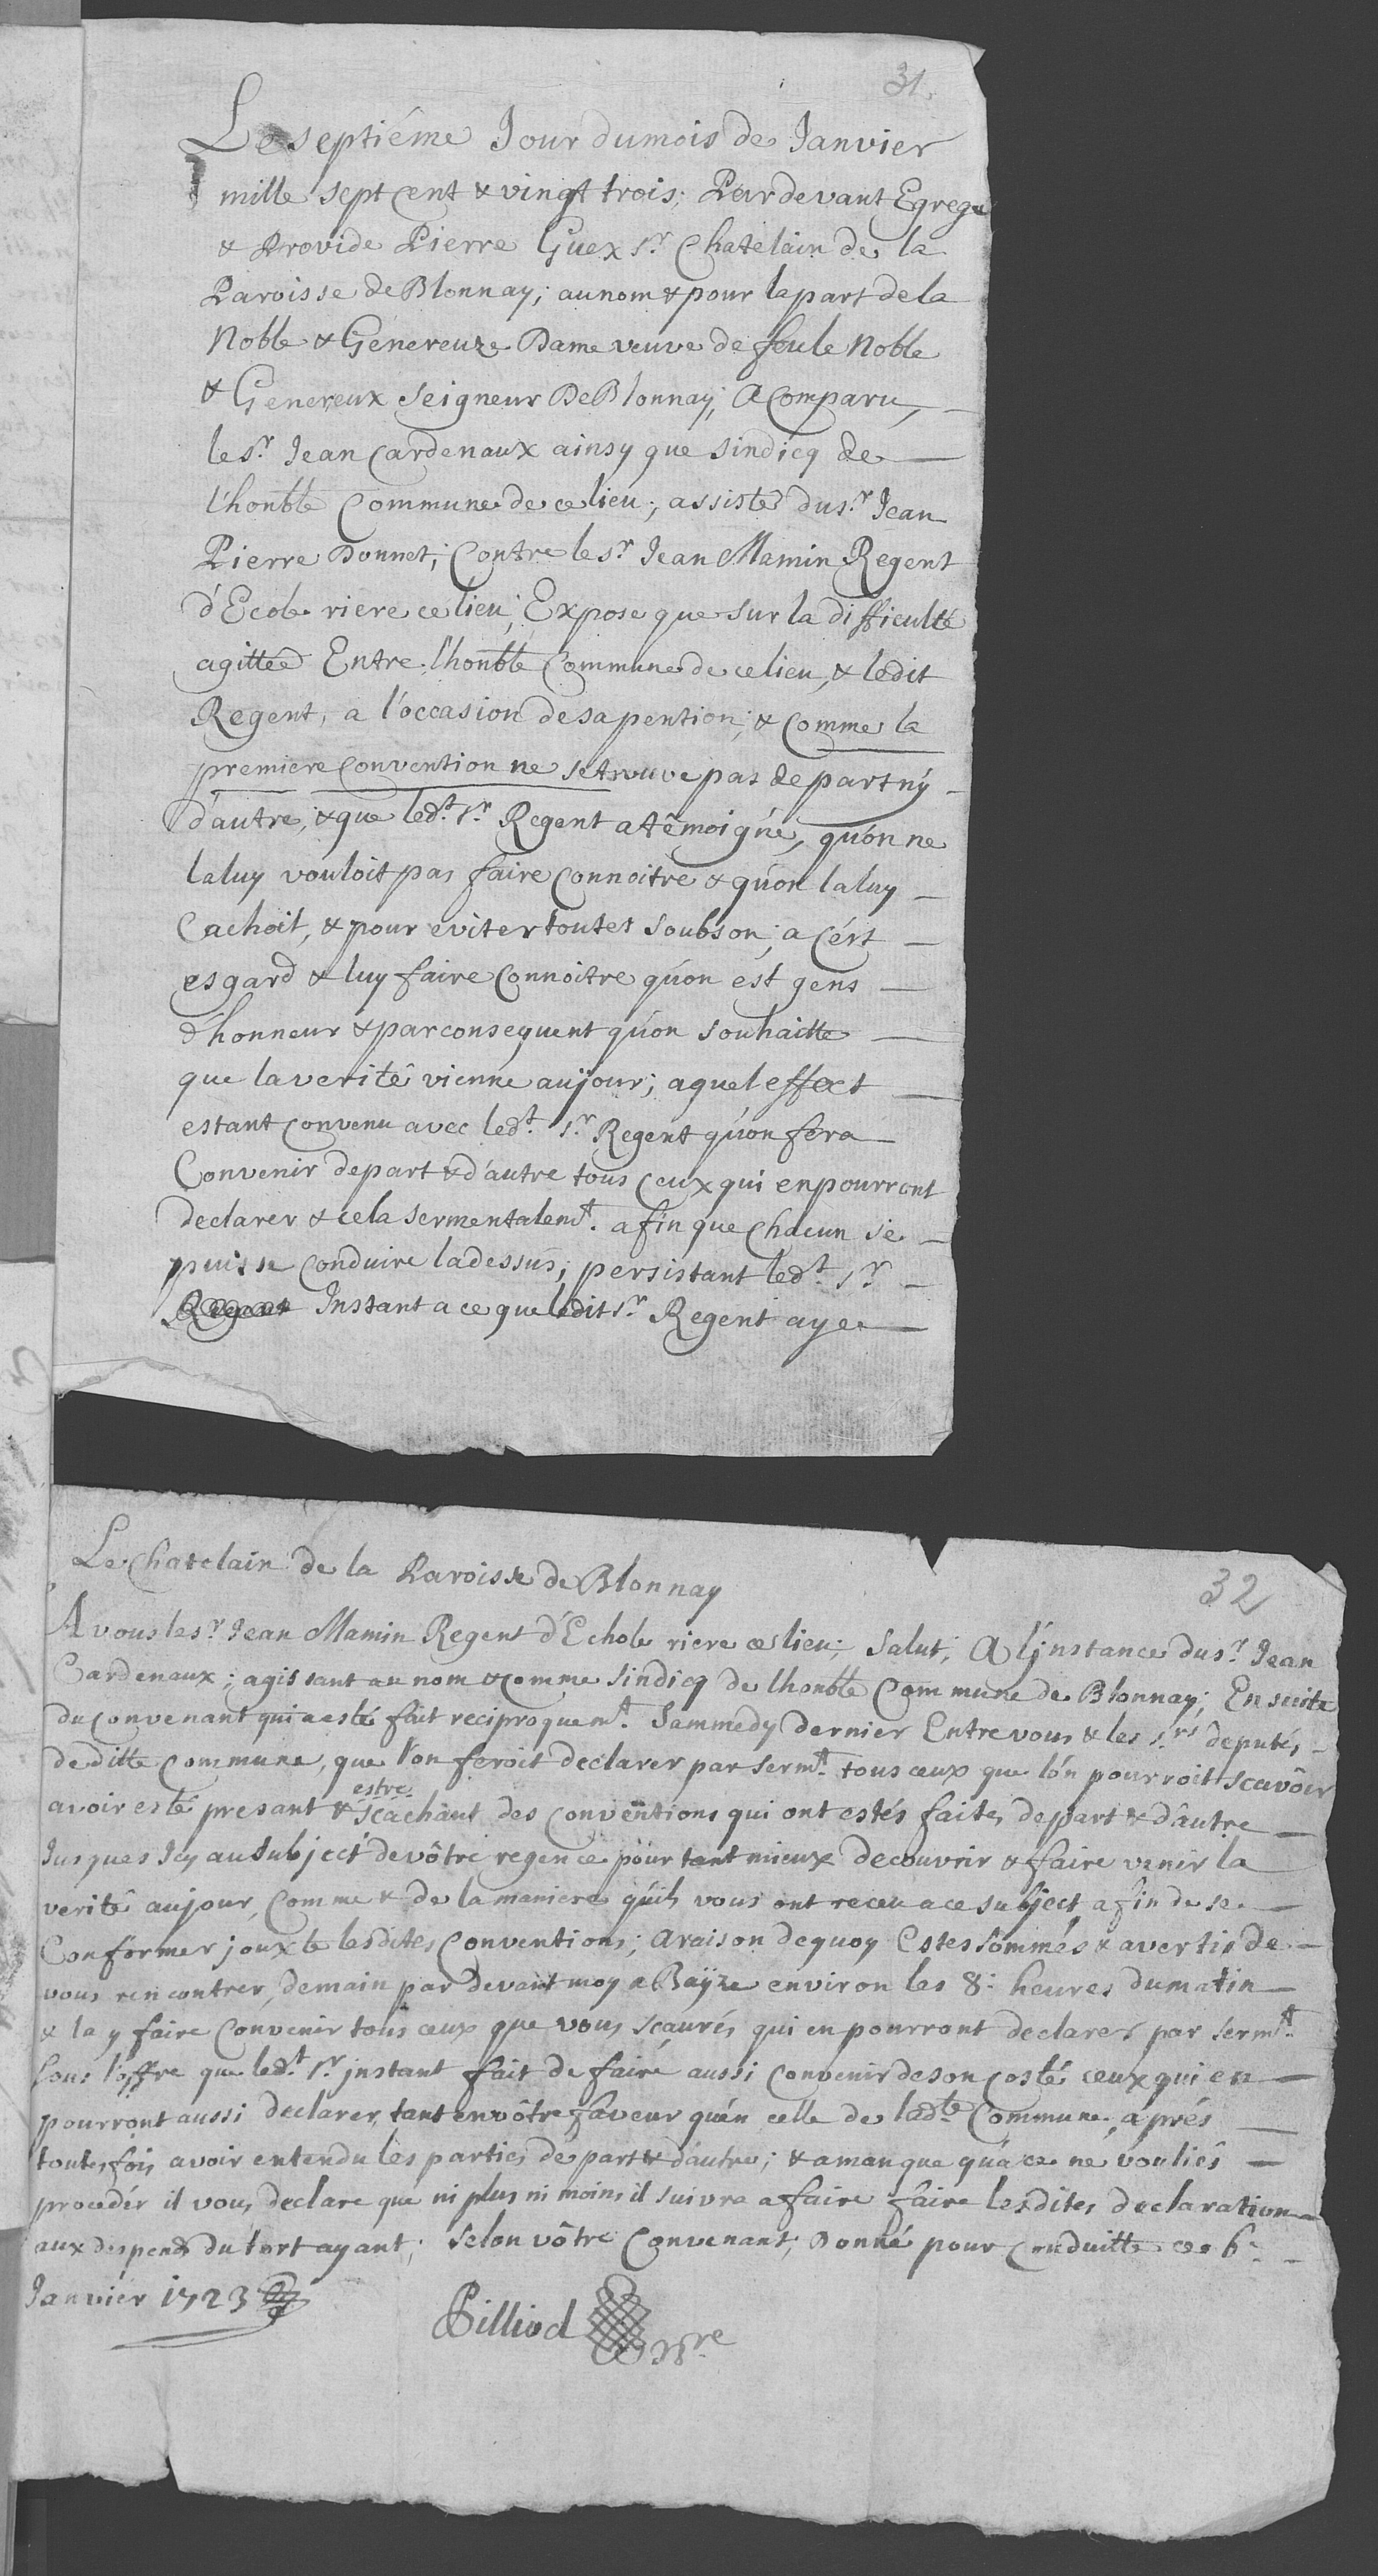 31.
Le septiéme Jour du mois de Janvier
mille sept cent & vingt trois; Par devant Egrege
& Provide Pierre Guex Sr. Chatelain de la
Paroisse de Blonnay; au nom & pour la part de la
Noble & Genereuze Dame veuve de feu le Noble
& Genereux Seigneur De Blonnay, A Comparu,
le Sr. Jean Cardenaux ainsy que Sindicq de
l'honble Commune de ce lieu; assisté du Sr. Jean
Pierre Bonnet; Contre le Sr. Jean Mamin Regent
d'Ecole riere ce lieu; Expose que sur la difficulté
agittée Entre l'honble Commune de ce lieu, & ledit
Regent, a l'occasion de sa pention; & Comme la
premiere Convention ne se trouve pas de part ny
d'autre, & que ledt. Sr. Regent a témoigné, qu'on ne
la luy vouloit pas faire Connoitre & qu'on la luy
Cachoit, & pour eviter toutes Soubson; a cért
esgard & luy faire Connoitre qu'on est gens
d'honneur & par consequent qu'on souhaitte
que la verité vienne au jour; a quel effect
estant convenu avec ledt. Sr. Regent qu'on fera
Convenir de part & d'autre tous ceux qui en pourront
declarer & cela sermentalemt. afin que chacun se
puisse conduire la dessus; persistant ledt. Sr.
Regent Instant a ce que ledit Sr. Regent aye
Le Chatelain de la Paroisse de Blonnay
32
A vous le Sr. Jean Mamin Regent d'Echole riere ce lieu; Salut; A l'jnstance du Sr. Jean
Cardenaux; agissant au nom & comme Sindicq de lhonble Commune de Blonnay; En suite
du convenant qui a esté fait reciproquemt. Sammedy dernier Entre vous & les Srs. deputés
de ditte Commune, que l'on feroit declarer par sermt. tous ceux que lón pourroit scavoir
estre
avoir esté presant & scachant des conventions qui ont estés faites de part & d'autre
Jusques Icy au Subject de vôtre regence pour tant mieux decouvrir & faire venir la
verité au jour, Comme & de la maniere qu'ils vous ont receu a ce subject, afin de se
Conformer jouxte lesdites Conventions; a raison de quoy Estes sommés & avertis de
vous rencontrer, demain par devant moy a Bayze environ les 8: heures du matin
& la y faire Convenir tous ceux que vous scaurés qui en pourront declarer par sermt.
Sous l'offre que ledt. Sr. jnstant fait de faire aussi Convenir de son costé ceux qui en
pourront aussi declarer, tant en vôtre faveur qu'en celle de ladte. Commune, aprés
toutesfois avoir entendu les parties de part & d'autre; & a manque qu'a ce ne vouliés
proceder il vous declare que ni plus ni moins il suivra a faire faire lesdites declaration
aux despends du tort ayant; Selon vôtre Convenant; Donné pour conduitte ce 6:
Janvier 1723
Pilliod